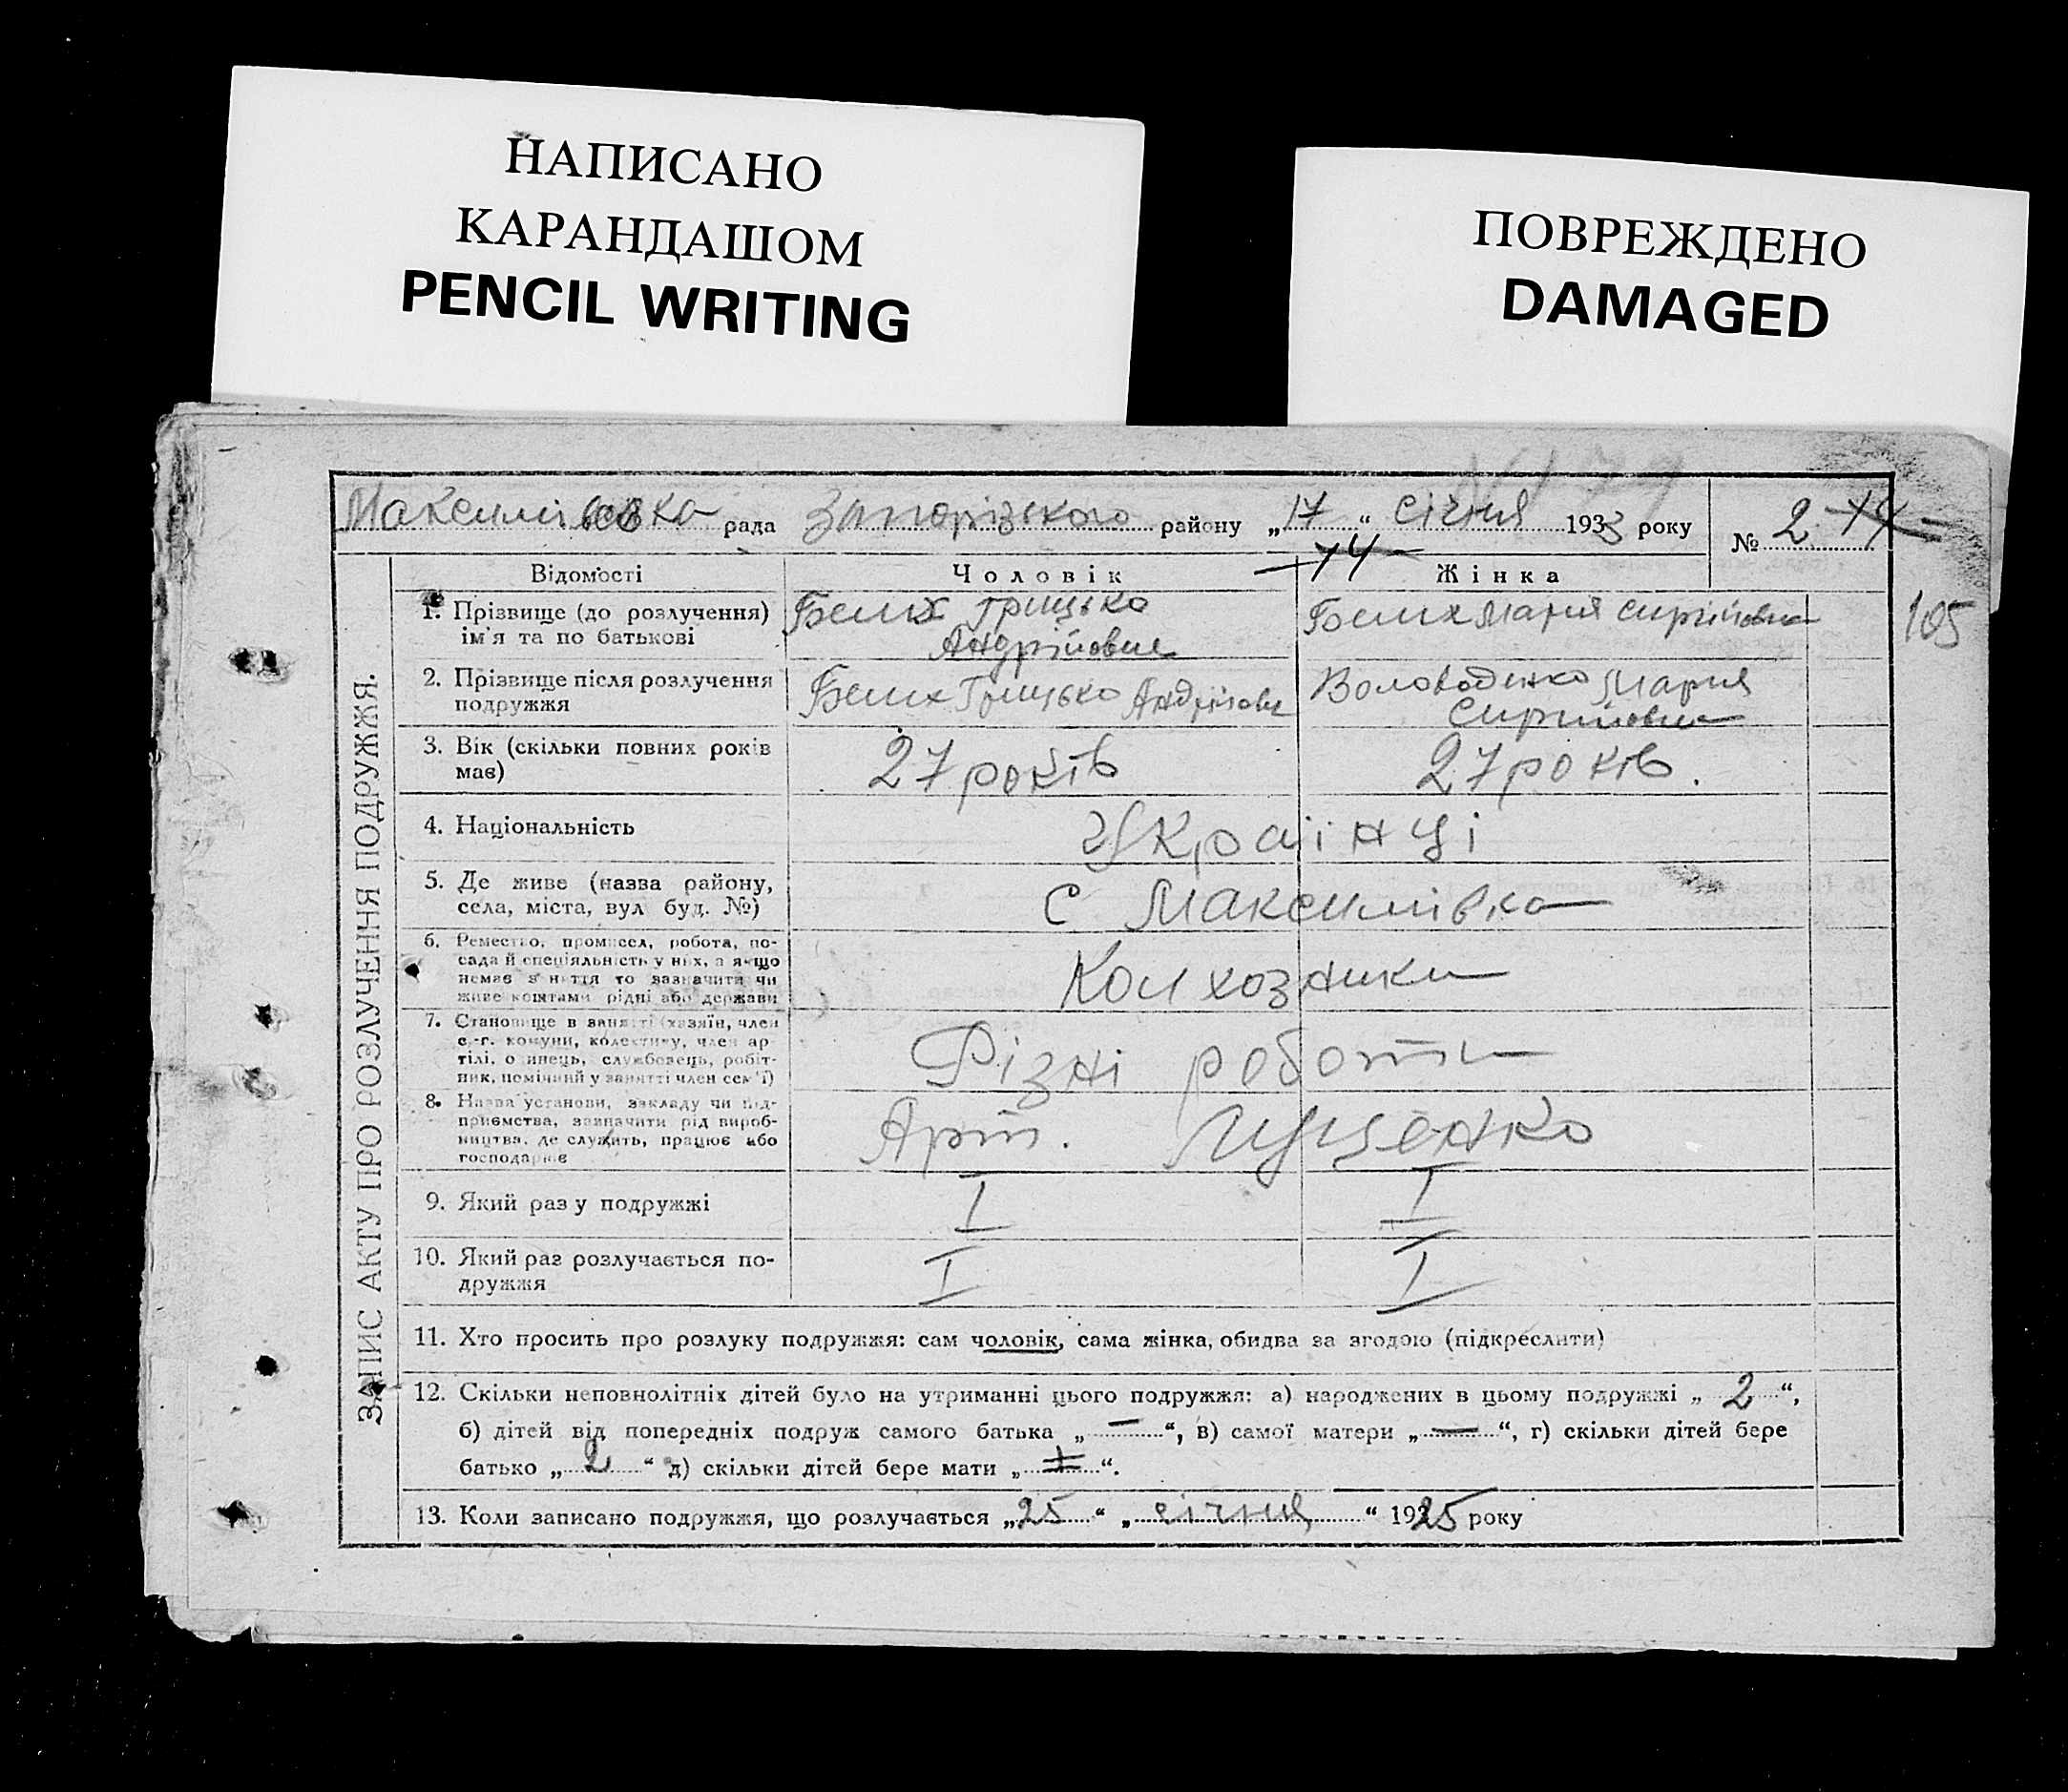 НАПИСАНО
КАРАНДАШОМ
PENCIL WRITING
ПОВРЕЖДЕНО
DAMAGED
рада Запорізького району „17“ січня 1933 року № 2 14
14
Відомості Чоловік Жінка
1. Прізвище (до розлучення) Белих Грицько Белих Мария
ім'я та по батькові Андрійович
105
2. Прізвище після розлучення Белих Грицько Мария
подружжя
3. Вік (скільки повних років 27 років 27 років.
має)
4. Національність Українці
5. Де живе (назва району, С Максимівка
села, міста, вул буд. №)
6. Ремество, промисел, робота, по-
сада й спеціяльність у них, а якщо
немає заняття то зазначити чи Колхозники
живе коштами рідні або держави
7. Становище в занятті (хазяїн, член
с.-г. комуни, колективу, член ар-
тілі, одинець, службовець, робіт- Різні роботи
ник, помічний у занятті член сем'ї)
8. Назва установи, закладу чи під-
приємства, зазначити рід вироб- Арт.
ництва, де служить, працює або
господарює
9. Який раз у подружжі I I
10. Який раз розлучається по- I I
дружжя
11. Хто просить про розлуку подружжя: сам чоловік, сама жінка, обидва за згодою (підкреслити)
12. Скільки неповнолітніх дітей було на утриманні цього подружжя: а) народжених в цьому подружжі „2“,
б) дітей від попередніх подруж самого батька „—“, в) самої матери „—“, г) скільки дітей бере
батько „2“ д) скільки дітей бере мати „ “.
13. Коли записано подружжя, що розлучається „25“ „січня“ 1925 року
ЗАПИС АКТУ ПРО РОЗЛУЧЕННЯ ПОДРУЖЖЯ.